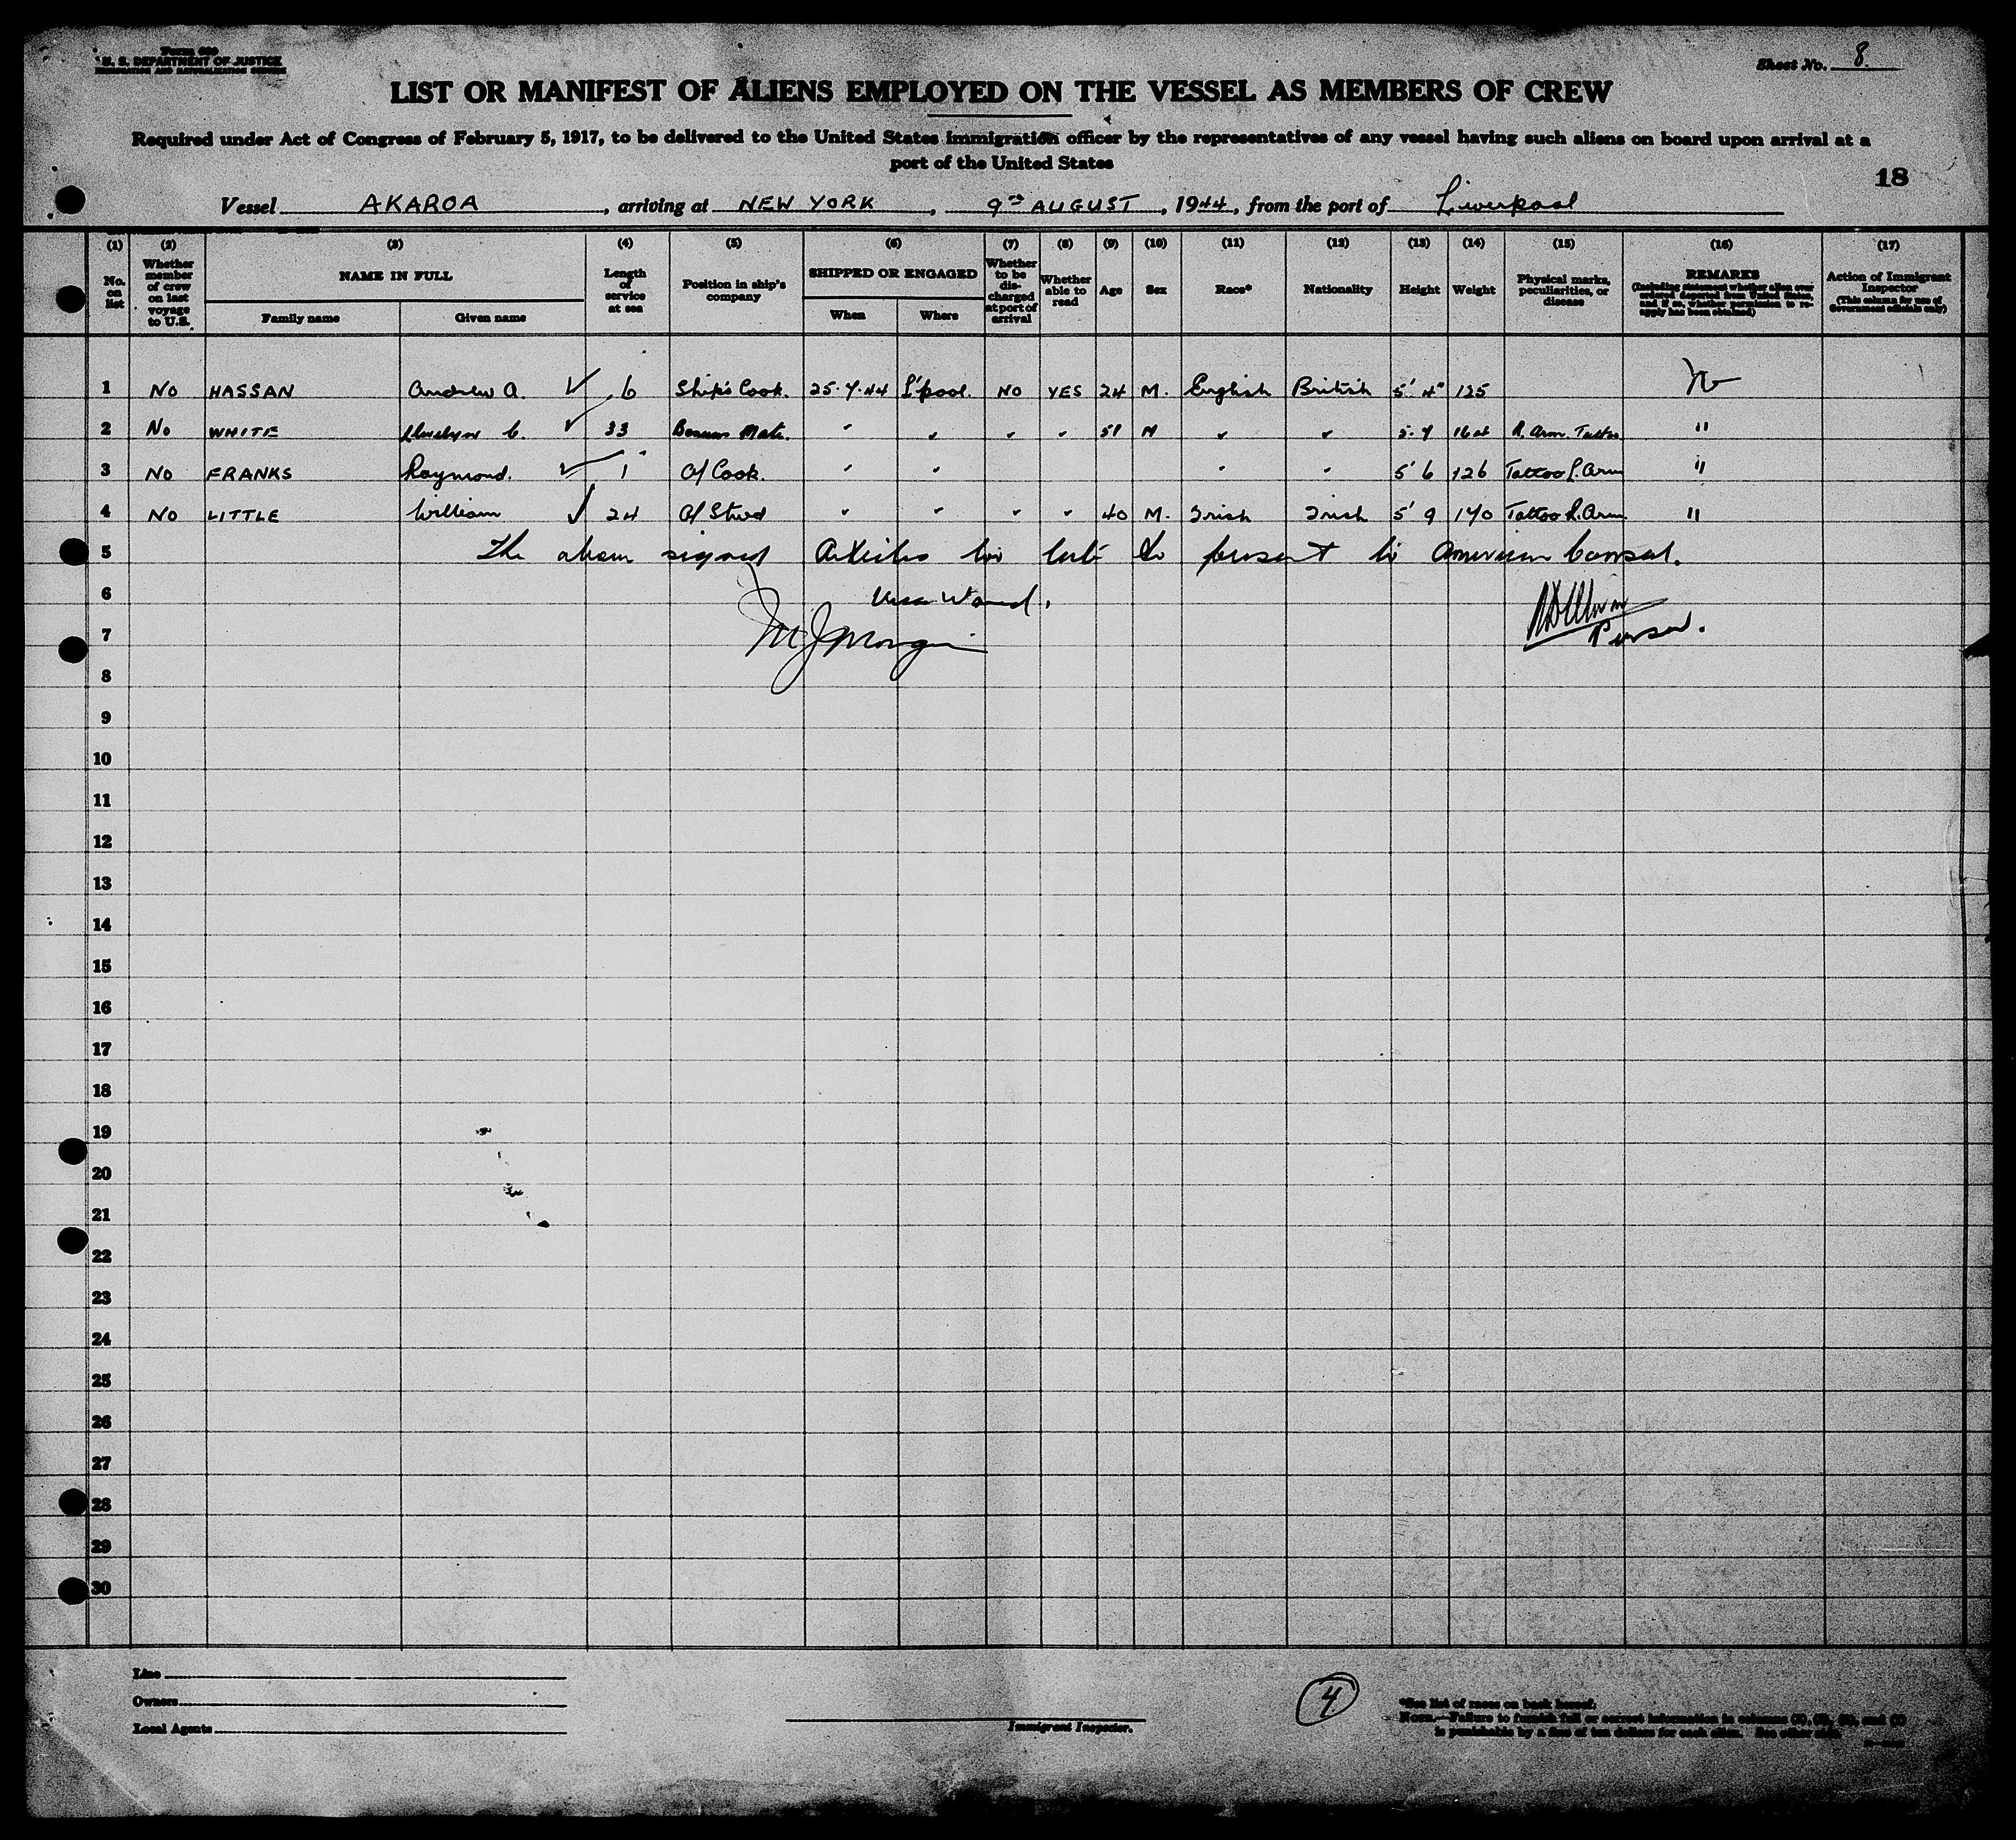 U. S. DEPARTMENT OF JUSTICE
IMMIGRATION AND NATURALIZATION SERVICE
Sheet No. 8.
LIST OR MANIFEST OF ALIENS EMPLOYED ON THE VESSEL AS MEMBERS OF CREW
Required under Act of Congress of February 5, 1917, to be delivered to the United States immigration officer by the representatives of any vessel having such aliens on board upon arrival at a
port of the United States
18
Vessel AKAROA, arriving at NEW YORK, 9TH AUGUST, 1944, from the port of Liverpool
(1) (2) (3) (4) (5) (6) (7) (8) (9) (10) (11) (12) (13) (14) (15) (16) (17)
No. on list
Whether member of crew on last voyage to U.S.
NAME IN FULL
Family name
Given name
Length of service at sea
Position in ship's company
SHIPPED OR ENGAGED
When
Where
Whether to be discharged at port of arrival
Whether able to read
Age
Sex
Race*
Nationality
Height
Weight
Physical marks, peculiarities, or disease
REMARKS
(Including statement whether alien ever ordered deported from United States, and if so, whether permission to reapply has been obtained)
Action of Immigrant Inspector
(This column for use of Government officials only)
1 NO HASSAN Andrew A. ✓ 6 Ship's Cook. 25.7.44 L'pool. NO YES 24 M. English British 5' 4" 125 No
2 No WHITE Llewelyn C. ✓ 33 Bosuns Mate. " " " " 51 M " " 5.7 16st R. Arm. Tattoo "
3 NO FRANKS Raymond. ✓ 1 A/ Cook. " " " " 5' 6 126 Tattoo L. Arm "
4 NO LITTLE William ✓ 24 A/ Stwd " " " " 40 M. Irish Irish 5' 9 170 Tattoo R. Arm "
5 The above signed Articles too late to present to American Consul.
6
7 M J Morgan
Purser.
8
9
10
11
12
13
14
15
16
17
18
19
20
21
22
23
24
25
26
27
28
29
30
Line
Owners
Local Agents
Immigrant Inspector.
4
*See list of races on back hereof.
NOTE.—Failure to furnish full or correct information in columns
is punishable by a fine of ten dollars for each alien. See other side.